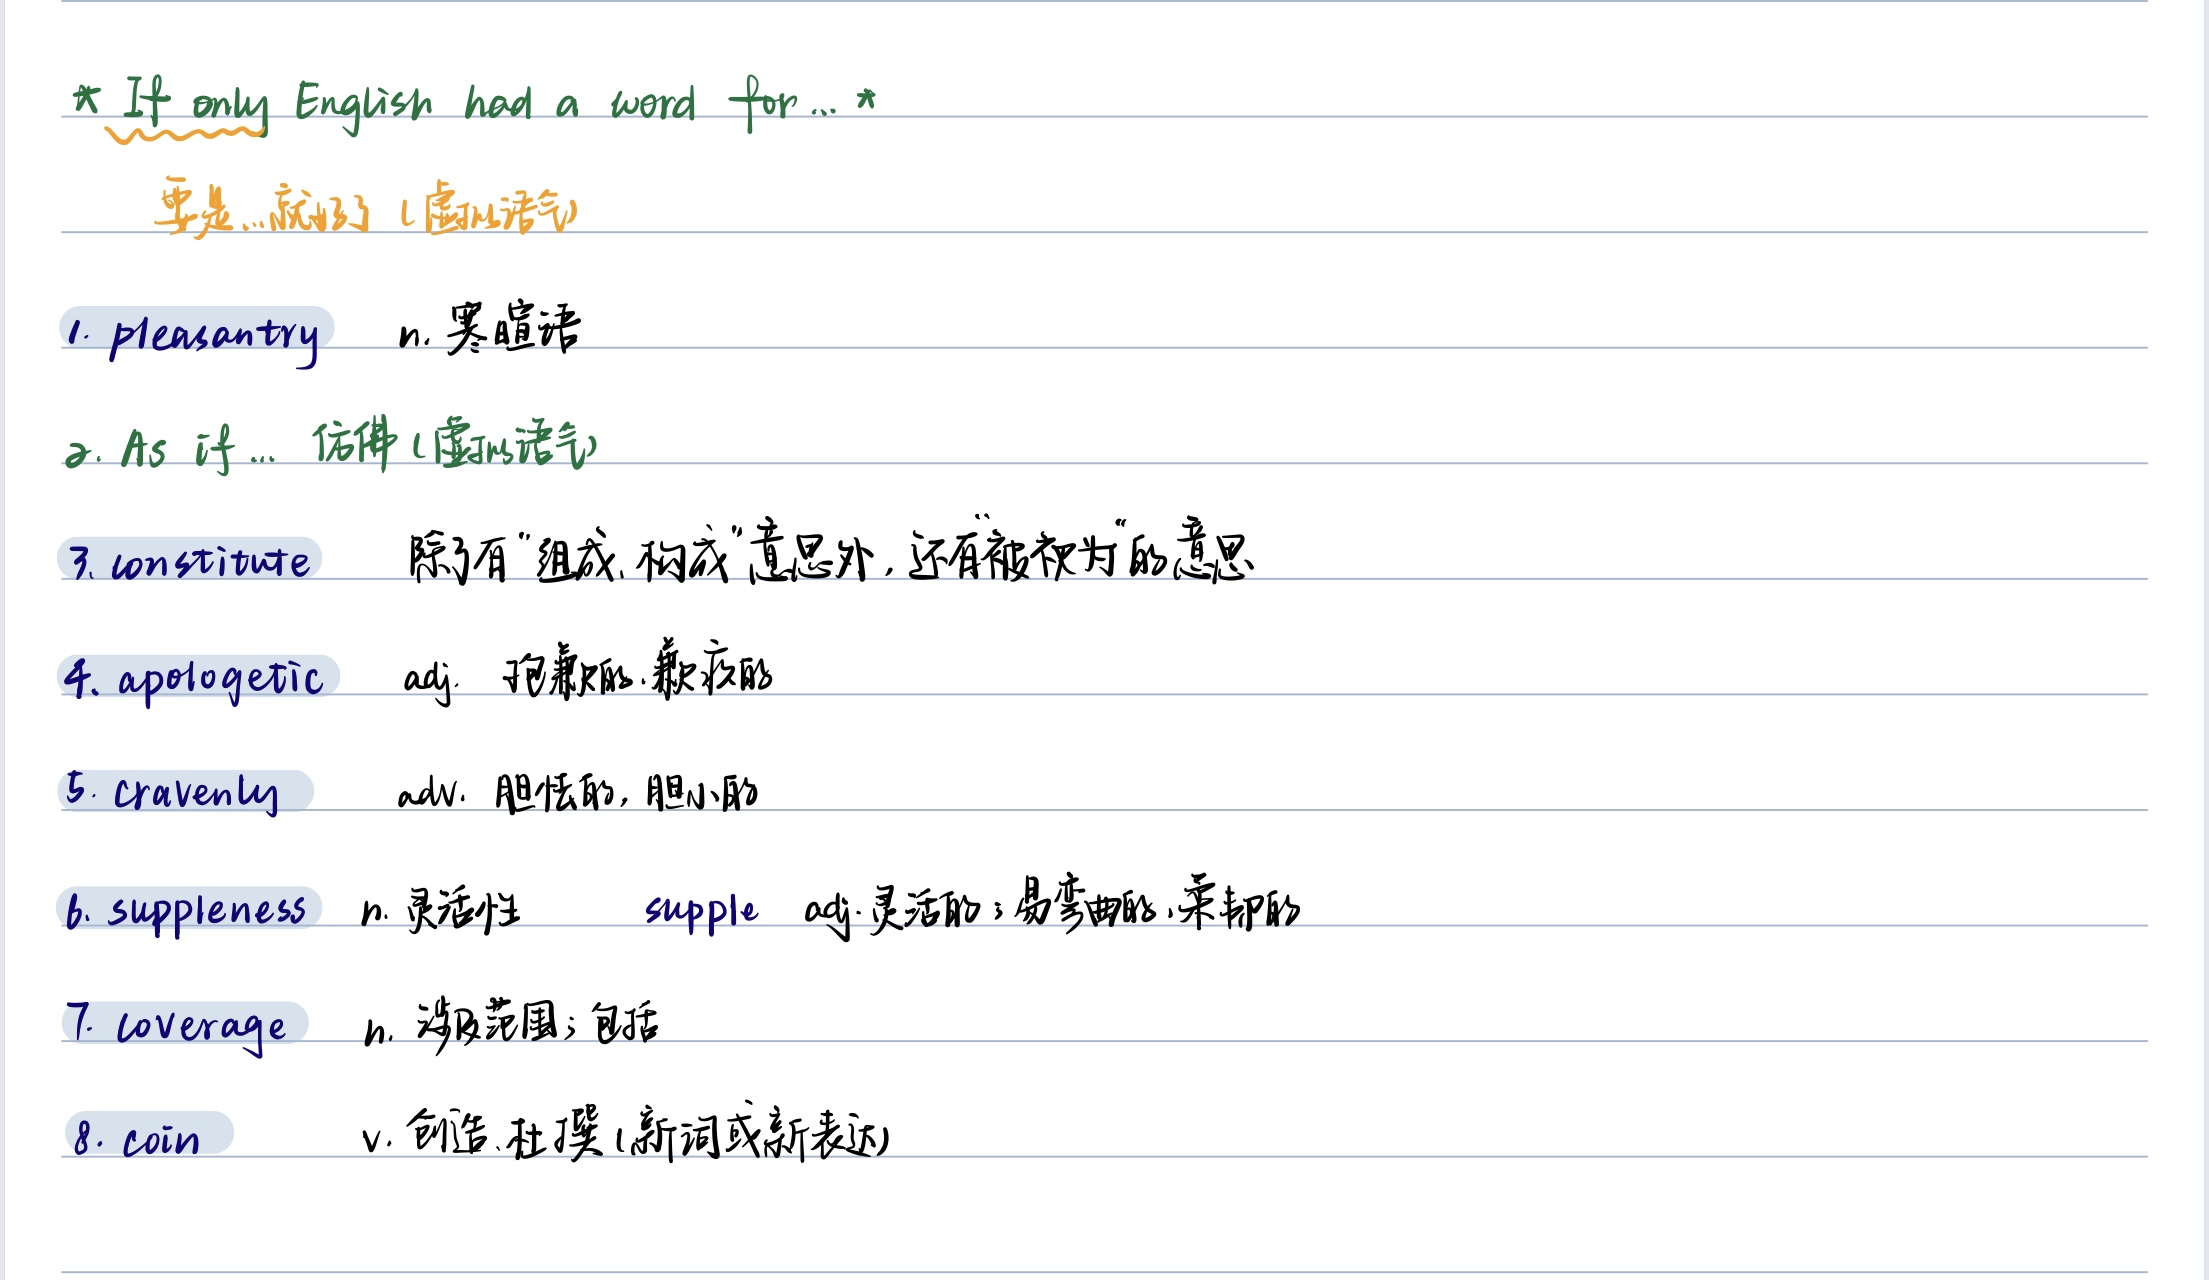 * If only English had a word for... *
要是...就好了（虚拟语气）
1. pleasantry n. 寒暄语
2. As if... 仿佛（虚拟语气）
3. constitute 除了有“组成、构成”意思外，还有“被视为“的意思
4. apologetic adj. 抱歉的、歉疚的
5. cravenly adv. 胆怯的，胆小的
6. suppleness n. 灵活性 supple adj. 灵活的；易弯曲的、柔韧的
7. coverage n. 涉及范围；包括
8. coin v. 创造、杜撰（新词或新表达）